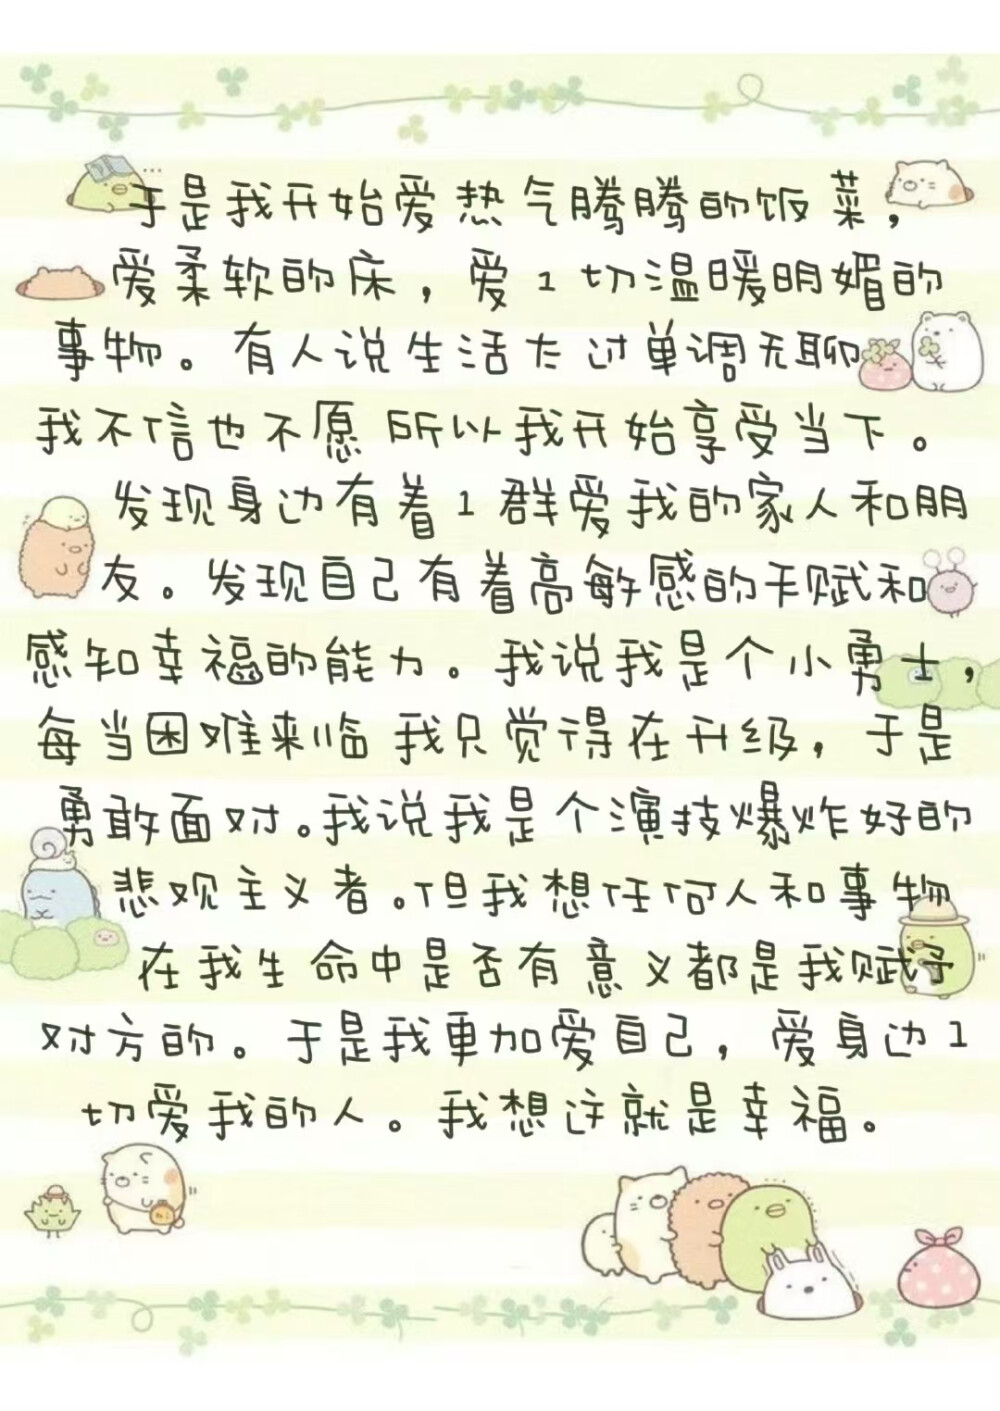 于是我开始爱热气腾腾的饭菜，
爱柔软的床，爱1切温暖明媚的
事物。有人说生活太过单调无聊
我不信也不愿 所以我开始享受当下。
发现身边有着1群爱我的家人和朋
友。发现自己有着高敏感的天赋和
感知幸福的能力。我说我是个小勇士，
每当困难来临 我只觉得在升级，于是
勇敢面对。我说我是个演技爆炸好的
悲观主义者。但我想任何人和事物
在我生命中是否有意义都是我赋予
对方的。于是我更加爱自己，爱身边1
切爱我的人。我想这就是幸福。